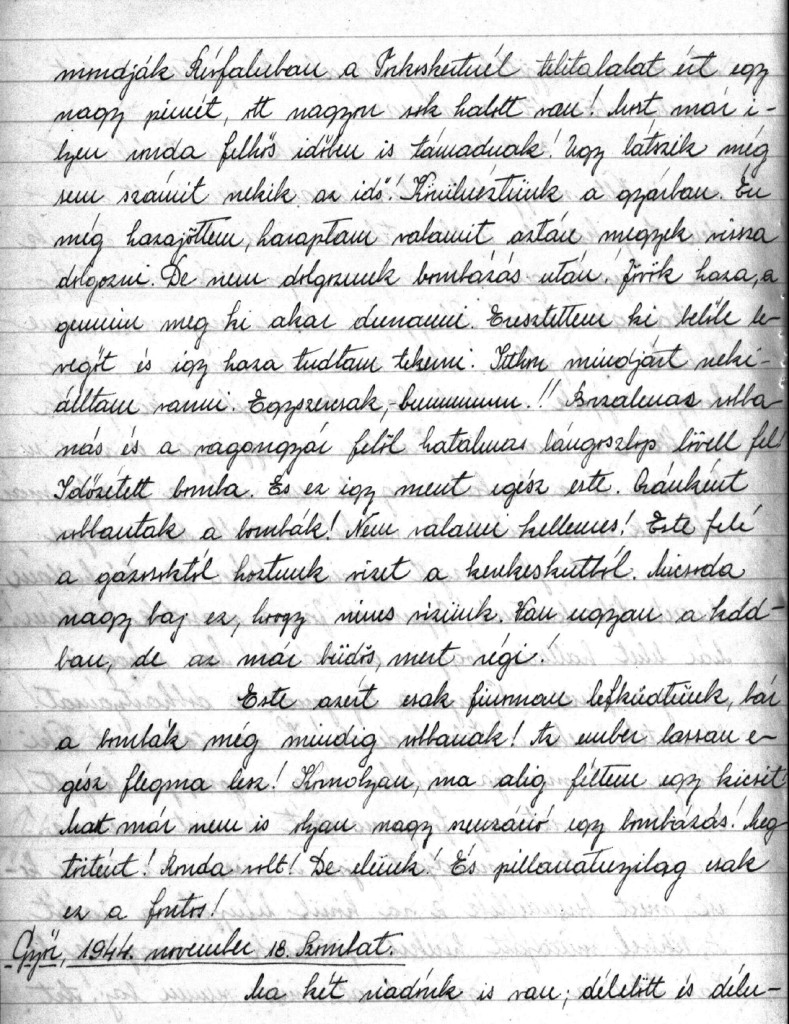 mondják Révfaluban a Torkoskertnél telitalalat ért egy
nagy pincét, ott nagyon sok halott van! Most már i-
lyen ronda felhős időben is támadnak! Ugy látszik még
sem számit nekik az idő! Körülnéztünk a gyárban. Én
még hazajöttem, haraptam valamit aztán megyek vissza
dolgozni. De nem dolgozunk bombázás után. Jövök haza, a
gumim meg ki akar durranni. Eresztettem ki belőle le-
vegőt és igy haza tudtam tekerni. Itthon mindjárt neki-
álltam varrni. Egyszercsak, -bummmmm.!! Borzalmas robba-
nás és a vagongyár felől hatalmas lángoszlop lövell fel!
Időzétett bomba. És ez igy ment egész este. Óránként
robbantak a bombák! Nem valami kellemes! Este felé
a gázosoktól hoztunk vizet a kerekeskutból. Micsoda
nagy baj ez, hogy nincs vizünk. Van ugyan a kád-
ban, de az már büdös, mert régi!
Este azért csak finoman lefküdtünk, bár
a bombák még mindig robbanak! Az ember lassan e-
gész flegma lesz! Komolyan, ma alig féltem egy kicsit!
Mat már nem is olyan nagy szenzáció egy bombázás! Meg
történt! Ronda volt! De élünk! És pillanatnyilag csak
ez a fontos!
Győr, 1944. november 18. Szombat.
Ma két riadónk is van; délelőtt és délu-